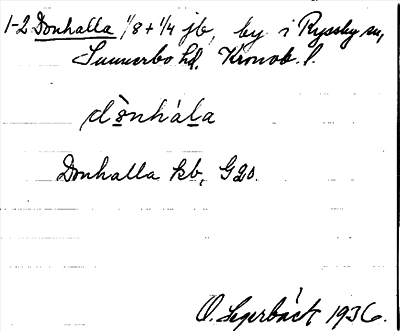 1-2 Donhalla 1/8 + 1/4 jb, by i Ryssby sn,
Sunnerbo hd, Kronob. l.
dònhála
Donhalla kb, G20.
O. Segerbäck 1936.